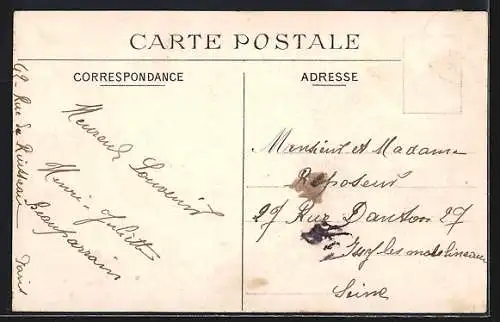 CARTE POSTALE
CORRESPONDANCE
ADRESSE
49 - Rue du Ruisseau
Paris
Souvenir
Henri - Juliette
Monsieur et Madame
Reposeur
27 Rue Danton 27
Issy les molineaux
Seine